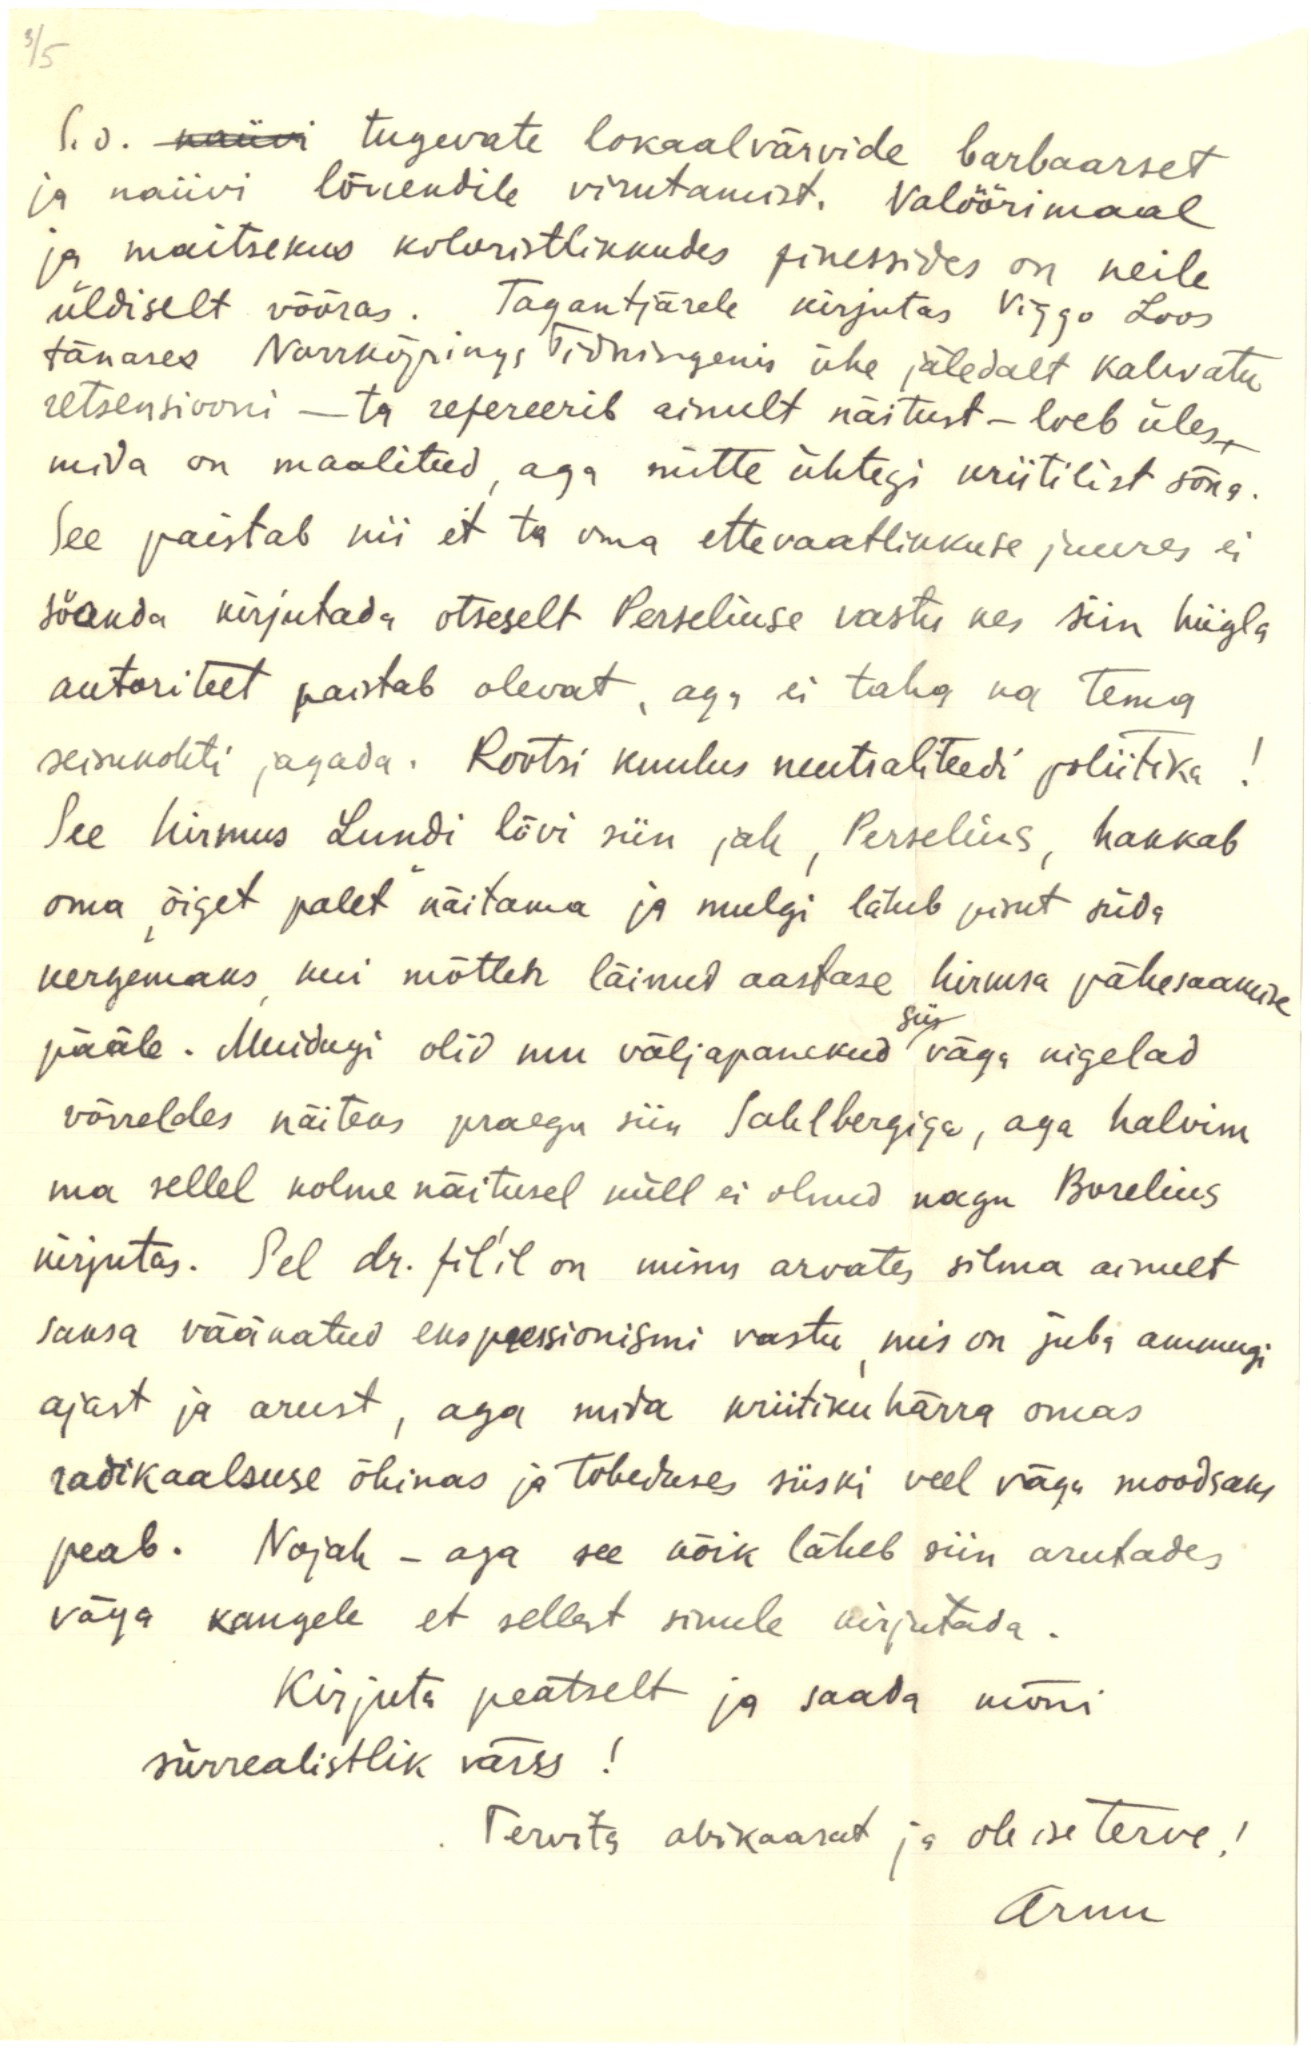 3/5
S.o. naiivi tugevate lokaalvärvide barbaarset
ja naiivi lõuendile virutamist. Valöörimaal
ja maitsekus koloristlikkudes finessides on neile
üldiselt võõras. Tagantjärele kirjutas Viggo Loos
tänases Norrköpings Tidningenis ühe jäledalt kahvatu
retsensiooni — ta refereerib ainult näitust – loeb üles,
mida on maalitud, aga mitte ühtegi kriitilist sõna.
See paistab nii et ta oma ettevaatlikkuse juures ei
söanda kirjutada otseselt Perseliuse vastu kes siin hiigla
autoriteet paistab olevat, aga ei taha ka tema
seisukohti jagada. Rootsi kuulus neutraliteedi poliitika!
See hirmus Lundi lõvi siin jah, Perselius, hakkab
oma „õiget palet" näitama ja mulgi läheb pisut süda
kergemaks, kui mõtlen läinud aastase hirmsa pähesaamise
pääle. Muidugi olid mu väljapanekud siis väga nigelad
võrreldes näiteks praegu siin Sahlbergiga, aga halvim
ma sellel kolme näitusel küll ei olnud nagu Borelius
kirjutas. Sel dr. fil'il on minu arvates silma ainult
saksa väänatud ekspressionismi vastu, mis on juba ammugi
ajast ja arust, aga mida kriitiku härra omas
radikaalsuse õhinas ja tobeduses siiski veel väga moodsaks
peab. Nojah – aga see kõik läheb siin arutades
väga kaugele et sellest sinule kirjutada.
Kirjuta peatselt ja saada mõni
sürrealistlik värss!
Tervita abikaasat ja ole ise terve!
Arnu